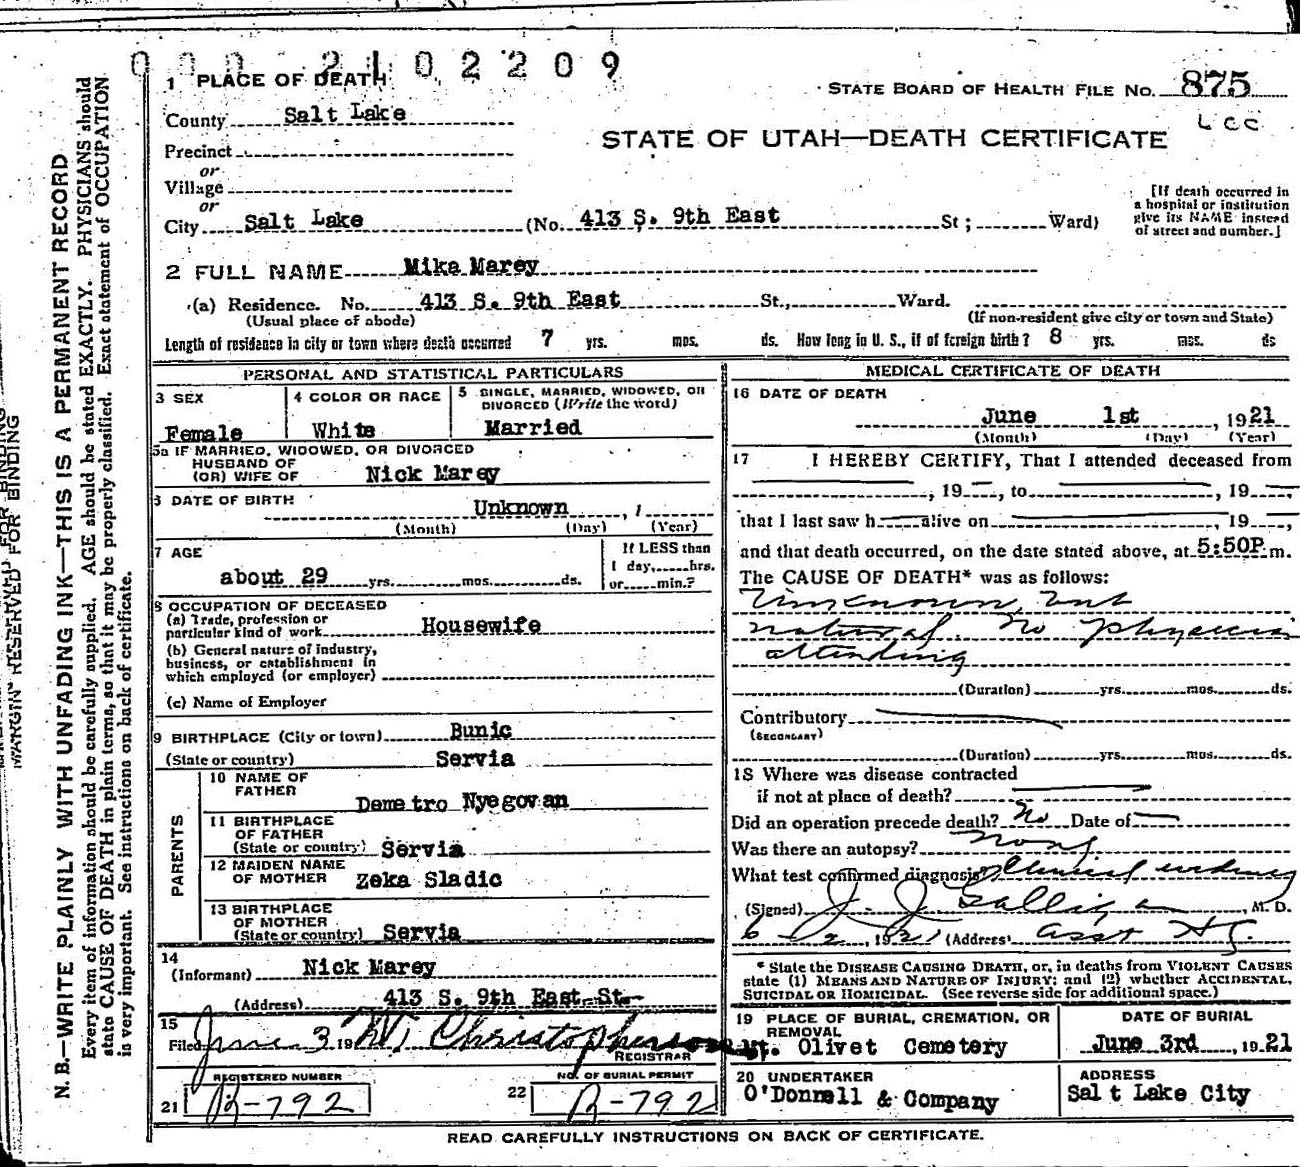 000 2102209
1 PLACE OF DEATH
STATE BOARD OF HEALTH FILE NO. 875
County Salt Lake
L C C
STATE OF UTAH—DEATH CERTIFICATE
Precinct
or
Village
or
City Salt Lake (No. 413 S. 9th East St; Ward)
[If death occurred in
a hospital or institution
give its NAME instead
of street and number.]
2 FULL NAME Mika Marey
(a) Residence. No. 413 S. 9th East St., Ward.
(Usual place of abode) (If non-resident give city or town and State)
Length of residence in city or town where death occurred 7 yrs. mos. ds. How long in U. S., if of foreign birth? 8 yrs. mos. ds
PERSONAL AND STATISTICAL PARTICULARS
3 SEX
Female
4 COLOR OR RACE
White
5 SINGLE, MARRIED, WIDOWED, OR
DIVORCED (Write the word)
Married
5a IF MARRIED, WIDOWED, OR DIVORCED
HUSBAND OF
(OR) WIFE OF Nick Marey
6 DATE OF BIRTH
Unknown , 1
(Month) (Day) (Year)
7 AGE
about 29 yrs. mos. ds.
If LESS than
1 day, hrs.
or min.?
8 OCCUPATION OF DECEASED
(a) Trade, profession or
particular kind of work Housewife
(b) General nature of industry,
business, or establishment in
which employed (or employer)
(c) Name of Employer
9 BIRTHPLACE (City or town) Bunic
(State or country) Servia
PARENTS
10 NAME OF
FATHER Demetro Nyegovan
11 BIRTHPLACE
OF FATHER
(State or country) Servia
12 MAIDEN NAME
OF MOTHER Zeka Sladic
13 BIRTHPLACE
OF MOTHER
(State or country) Servia
14
(Informant) Nick Marey
(Address) 413 S. 9th East St.
15
Filed June 3 19 Christopherson
REGISTRAR
REGISTERED NUMBER
21 B-792
NO. OF BURIAL PERMIT
22 B-792
MEDICAL CERTIFICATE OF DEATH
16 DATE OF DEATH
June 1st , 1921
(Month) (Day) (Year)
17 I HEREBY CERTIFY, That I attended deceased from
, 19 , to , 19 ,
that I last saw h alive on , 19 ,
and that death occurred, on the date stated above, at 5:50P.m.
The CAUSE OF DEATH* was as follows:
Unknown, but
natural. No physician
attending
(Duration) yrs. mos. ds.
Contributory
(SECONDARY)
(Duration) yrs. mos. ds.
18 Where was disease contracted
if not at place of death?
Did an operation precede death? No Date of
Was there an autopsy? None
What test confirmed diagnosis? Clinical evidence
(Signed) J. J. Galligan, M. D.
6 2, 1921 (Address) Asst
* State the DISEASE CAUSING DEATH, or, in deaths from VIOLENT CAUSES
state (1) MEANS AND NATURE OF INJURY; and (2) whether ACCIDENTAL,
SUICIDAL OR HOMICIDAL. (See reverse side for additional space.)
19 PLACE OF BURIAL, CREMATION, OR
REMOVAL
Mt. Olivet Cemetery
DATE OF BURIAL
June 3rd , 1921
20 UNDERTAKER
O'Donnell & Company
ADDRESS
Salt Lake City
READ CAREFULLY INSTRUCTIONS ON BACK OF CERTIFICATE.
MARGIN RESERVED FOR BINDING
N. B.—WRITE PLAINLY WITH UNFADING INK—THIS IS A PERMANENT RECORD
Every item of information should be carefully supplied. AGE should be stated EXACTLY. PHYSICIANS should
state CAUSE OF DEATH in plain terms, so that it may be properly classified. Exact statement of OCCUPATION
is very important. See instructions on back of certificate.